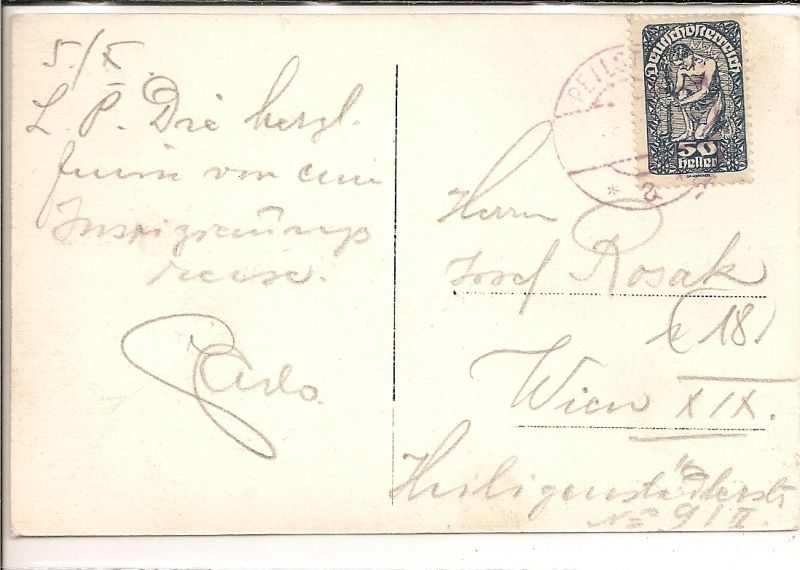 5/X
L. P. Die herzl.
von
Inspizierungs
reise.
PEILS
* a
Deutschösterreich
50
Heller
Herrn
Josef Rosak
(18)
Wien XIX.
Heiligenstädterstr
No 9/II.